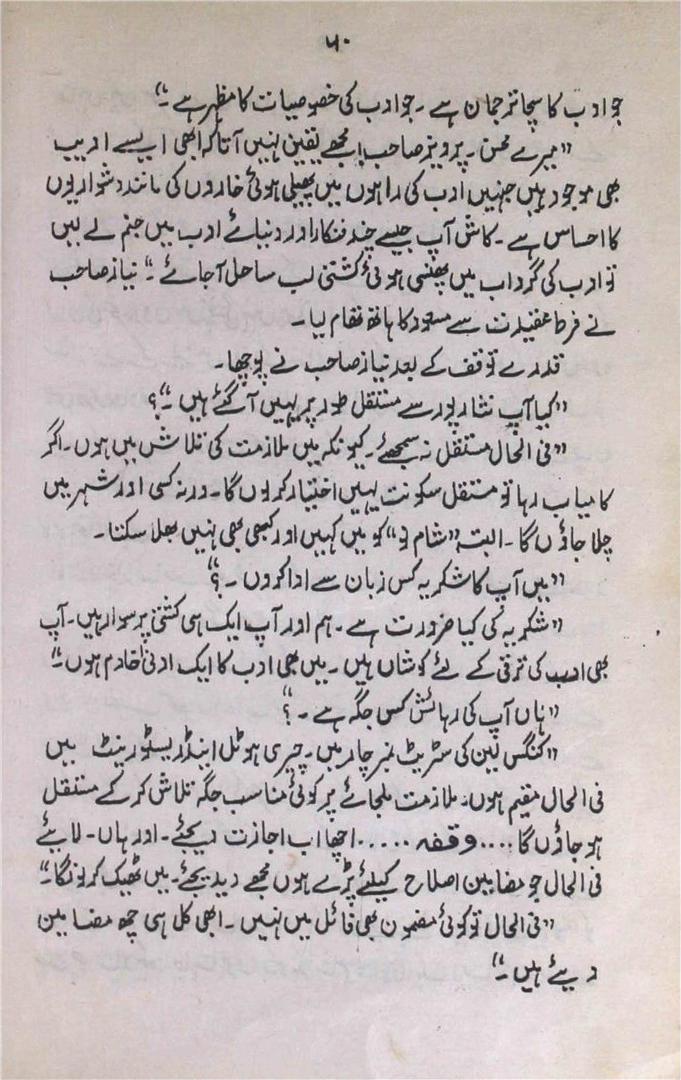 ۶۰
جو ادب کا سچا ترجمان ہے ۔ جو ادب کی خصوصیات کا مظہر ہے ۔"
"میرے محسن ۔ پرویز صاحب! مجھے یقین نہیں آتا کہ ابھی ایسے ادیب
بھی موجود ہیں جنہیں ادب کی راہوں میں پھیلی ہوئی خاروں کی مانند دشواریوں
کا احساس ہے ۔ کاش آپ جیسے چند فنکار اور دنیائے ادب میں جنم لے لیں
تو ادب کی گرداب میں پھنسی ہوئی کشتی لب ساحل آ جائے ۔" نیاز صاحب
نے فرط عقیدت سے مسعود کا ہاتھ تھام لیا ۔
قدرے توقف کے بعد نیاز صاحب نے پوچھا ۔
"کیا آپ نشار پور سے مستقل طور پر یہیں آ گئے ہیں ۔"؟
"فی الحال مستقل نہ سمجھئے ۔ کیونکہ میں ملازمت کی تلاش میں ہوں ۔ اگر
کامیاب رہا تو مستقل سکونت یہیں اختیار کر لوں گا ۔ ورنہ کسی اور شہر میں
چلا جاؤں گا ۔ البتہ "شام نو" کو میں کہیں اور کبھی بھی نہیں بھلا سکتا ۔
"میں آپ کا شکریہ کس زبان سے ادا کروں ۔"؟
"شکریہ کی کیا ضرورت ہے ۔ ہم اور آپ ایک ہی کشتی پر سوار ہیں ۔ آپ
بھی ادب کی ترقی کے لئے کوشاں ہیں ۔ میں بھی ادب کا ایک ادنیٰ خادم ہوں ۔"
"ہاں آپ کی رہائش کس جگہ ہے ۔"؟
"کنگس لین کی سٹریٹ نمبر چار میں ۔ چیری ہوٹل اینڈ ریسٹورینٹ میں
فی الحال مقیم ہوں ۔ ملازمت ملجائے پر کوئی مناسب جگہ تلاش کر کے منتقل
ہو جاؤں گا .... وقفہ ..... اچھا اب اجازت دیجئے ۔ اور ہاں ۔ لائیے
فی الحال جو مضامین اصلاح کیلئے پڑے ہوں مجھے دیدیجئے ۔ میں ٹھیک کر لونگا ۔"
"فی الحال تو کوئی مضمون بھی فائل میں نہیں ۔ ابھی کل ہی چھ مضامین
دیئے ہیں ۔"